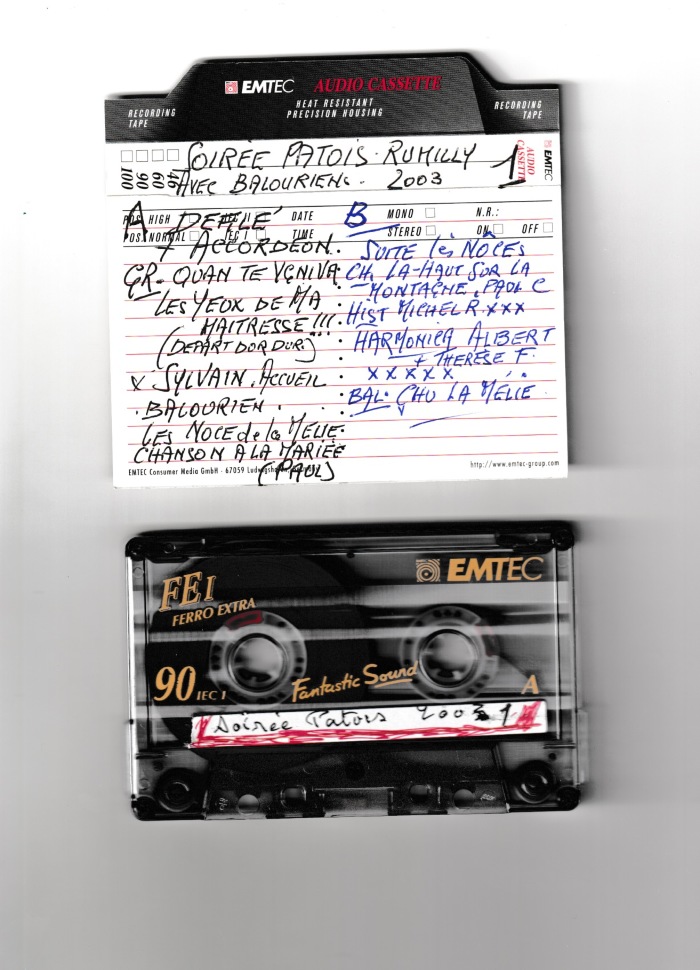 EMTEC AUDIO CASSETTE
HEAT RESISTANT
PRECISION HOUSING
RECORDING
TAPE
RECORDING
TAPE
100 90 60 45
SOIRÉE PATOIS. RUMILLY 1
AVEC BALOURIEN. 2003
EMTEC
AUDIO
CASSETTE
POS. HIGH DATE
POS. NORMAL IEC I TIME
MONO N.R.:
STEREO ON OFF
A DEFILÉ
+ ACCORDEON.
GR. QUAN TE VGNIVA
LES YEUX DE MA
MAITRESSE!!!
(DEPART DOR DUR)
x SYLVAIN. ACCUEIL
. BALOURIEN.
LES NOCE de la MELIE.
CHANSON A LA MARIÉE
(PAUL)
B
SUITE les NÔCES
CH. LA-HAUT SUR LA
MONTAGNE. PAUL C
HIST MICHEL R. xxx
HARMONICA ALBERT
+ THERESE F.
x x x x x
BAL. CHU LA MELIE
EMTEC Consumer Media GmbH · 67059
http://www.emtec-group.com
FE I
FERRO EXTRA
EMTEC
90 IEC I
Fantastic Sound
A
Soirée Patois 2003 1